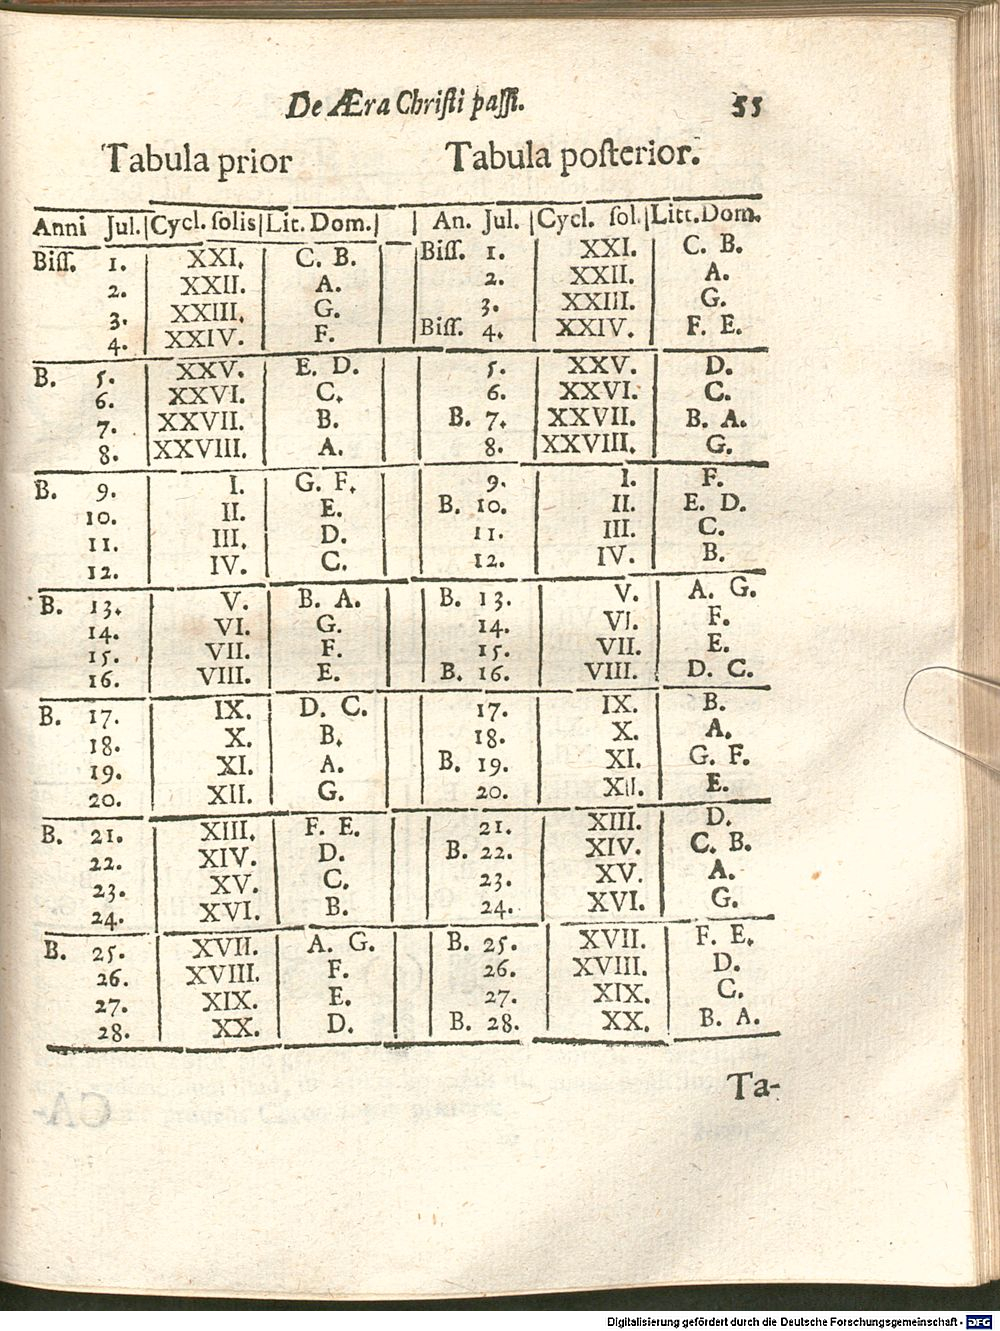 De Æra Christi passi. 55
Tabula prior Tabula posterior.
Anni Jul. | Cycl. solis | Lit. Dom. | | An. Jul. | Cycl. sol. | Litt. Dom.
Biss. 1. | XXI. | C. B. | | Biss. 1. | XXI. | C. B.
2. | XXII. | A. | | 2. | XXII. | A.
3. | XXIII. | G. | | 3. | XXIII. | G.
4. | XXIV. | F. | | Biss. 4. | XXIV. | F. E.
B. 5. | XXV. | E. D. | | 5. | XXV. | D.
6. | XXVI. | C. | | 6. | XXVI. | C.
7. | XXVII. | B. | | B. 7. | XXVII. | B. A.
8. | XXVIII. | A. | | 8. | XXVIII. | G.
B. 9. | I. | G. F. | | 9. | I. | F.
10. | II. | E. | | B. 10. | II. | E. D.
11. | III. | D. | | 11. | III. | C.
12. | IV. | C. | | 12. | IV. | B.
B. 13. | V. | B. A. | | B. 13. | V. | A. G.
14. | VI. | G. | | 14. | VI. | F.
15. | VII. | F. | | 15. | VII. | E.
16. | VIII. | E. | | B. 16. | VIII. | D. C.
B. 17. | IX. | D. C. | | 17. | IX. | B.
18. | X. | B. | | 18. | X. | A.
19. | XI. | A. | | B. 19. | XI. | G. F.
20. | XII. | G. | | 20. | XII. | E.
B. 21. | XIII. | F. E. | | 21. | XIII. | D.
22. | XIV. | D. | | B. 22. | XIV. | C. B.
23. | XV. | C. | | 23. | XV. | A.
24. | XVI. | B. | | 24. | XVI. | G.
B. 25. | XVII. | A. G. | | B. 25. | XVII. | F. E.
26. | XVIII. | F. | | 26. | XVIII. | D.
27. | XIX. | E. | | 27. | XIX. | C.
28. | XX. | D. | | B. 28. | XX. | B. A.
Ta-
Digitalisierung gefördert durch die Deutsche Forschungsgemeinschaft - DFG